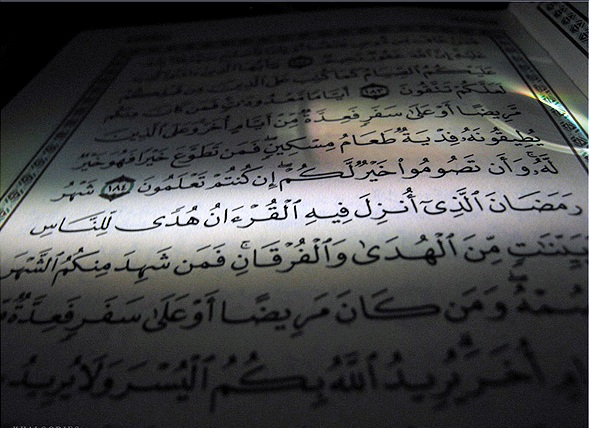 عَلَيْهِ إِنَّ ٱللَّهَ غَفُورٌ رَّحِيمٌ ١٨٢ يَٰٓأَيُّهَا ٱلَّذِينَ
عَلَيْكُمُ ٱلصِّيَامُ كَمَا كُتِبَ عَلَى ٱلَّذِينَ مِن قَبْلِكُمْ
لَعَلَّكُمْ تَتَّقُونَ ١٨٣ أَيَّامًا مَّعْدُودَٰتٍ فَمَن كَانَ مِنكُم
مَّرِيضًا أَوْ عَلَىٰ سَفَرٍ فَعِدَّةٌ مِّنْ أَيَّامٍ أُخَرَ وَعَلَى ٱلَّذِينَ
يُطِيقُونَهُۥ فِدْيَةٌ طَعَامُ مِسْكِينٍ فَمَن تَطَوَّعَ خَيْرًا فَهُوَ خَيْرٌ
لَّهُۥ وَأَن تَصُومُوا۟ خَيْرٌ لَّكُمْ إِن كُنتُمْ تَعْلَمُونَ ١٨٤ شَهْرُ
رَمَضَانَ ٱلَّذِىٓ أُنزِلَ فِيهِ ٱلْقُرْءَانُ هُدًى لِّلنَّاسِ
بَيِّنَٰتٍ مِّنَ ٱلْهُدَىٰ وَٱلْفُرْقَانِ فَمَن شَهِدَ مِنكُمُ ٱلشَّهْرَ
صُمْهُ وَمَن كَانَ مَرِيضًا أَوْ عَلَىٰ سَفَرٍ فَعِدَّةٌ
أُخَرَ يُرِيدُ ٱللَّهُ بِكُمُ ٱلْيُسْرَ وَلَا يُرِيدُ